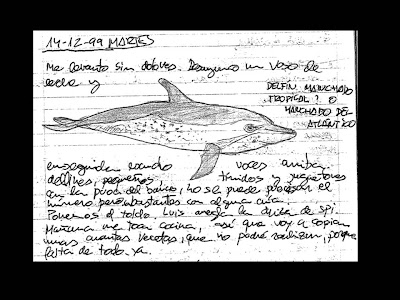 14-12-99 MARTES
Me levanto sin dolores. Desayuno un vaso de
leche y
DELFIN MANCHADO
TROPICAL? O
MANCHADO DEL
ATLÁNTICO
enseguida escucho voces arriba.
delfines, pequeños, tímidos y juguetones
en la proa del barco, no se puede precisar el
número pero bastantes con alguna cría.
Ponemos el toldo. Luis arregla la driza de spi.
Mañana me toca cocina, así que voy a copiar
unas cuantas recetas, que no podré realizar, porque
falta de todo ya.